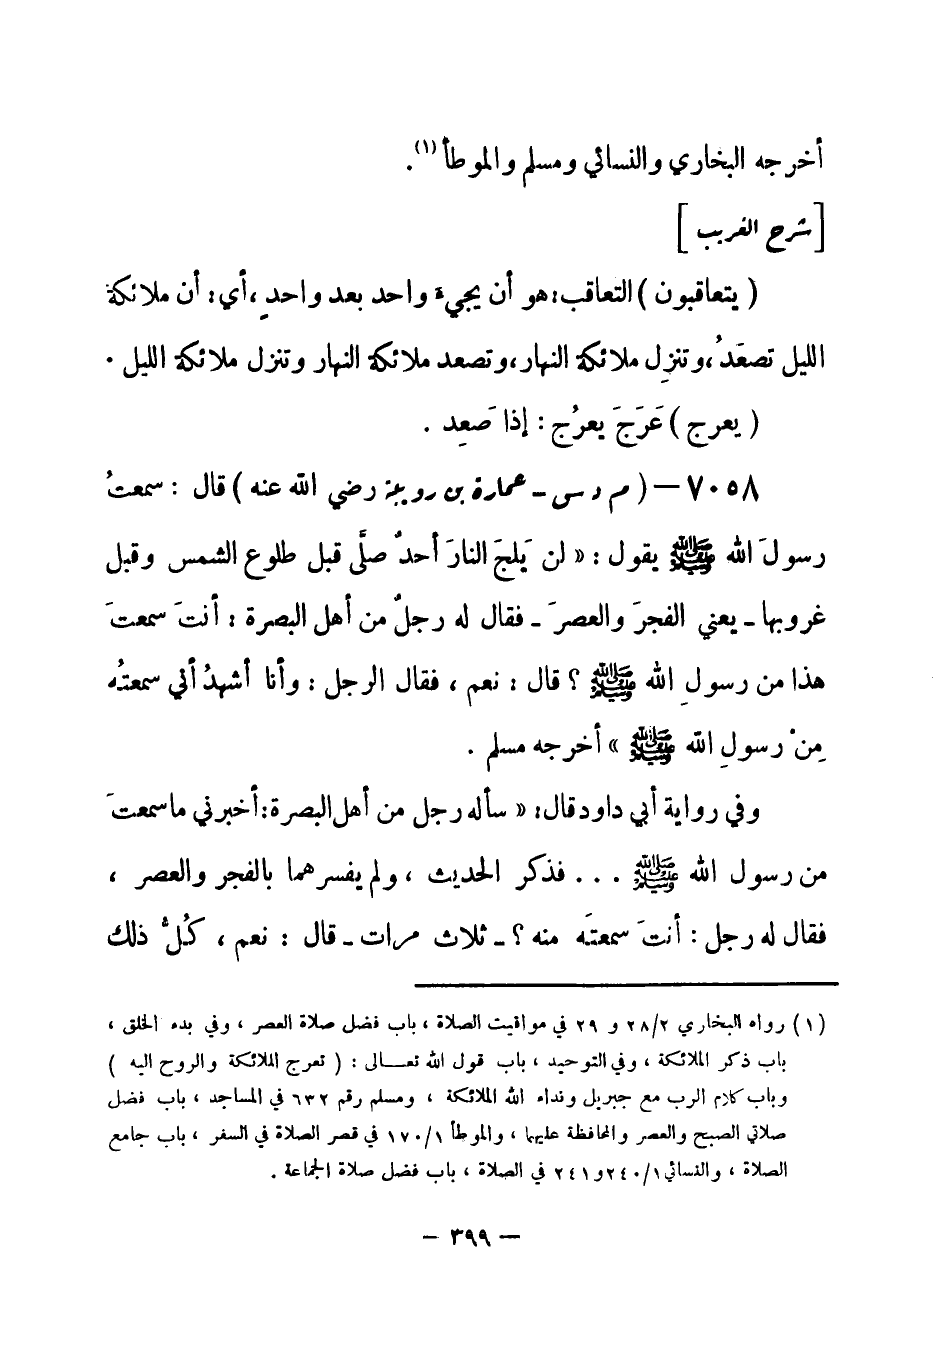 أخرجه البخاري والنسائي ومسلم والموطأ (١).
[ شرح الغريب ]
( يتعاقبون ) التعاقب: هو أن يجيء واحد بعد واحدٍ ، أي: أن ملائكة
الليل تصعَدُ ، وتنزِل ملائكة النهار ، وتصعد ملائكة النهار وتنزل ملائكة الليل .
( يعرج ) عَرَجَ يعرُج : إذا صَعِد .
٧٠٥٨ – ( م د س - عمارة بن رويبة رضي الله عنه ) قال : سمعتُ
رسولَ الله ﷺ يقول : « لن يَلجَ النارَ أحدٌ صلَّى قبل طلوع الشمس وقبل
غروبها - يعني الفجرَ والعصرَ - فقال له رجلٌ من أهل البصرة : أنتَ سمعتَ
هذا من رسولِ الله ﷺ ؟ قال : نعم ، فقال الرجل : وأنا أشهدُ أني سمعتُه
مِنْ رسولِ الله ﷺ » أخرجه مسلم .
وفي رواية أبي داود قال: « سأله رجل من أهل البصرة: أخبرني ما سمعتَ
من رسول الله ﷺ . . . فذكر الحديث ، ولم يفسرهما بالفجر والعصر ،
فقال له رجل : أنتَ سمعتَه منه ؟ - ثلاث مرات - قال : نعم ، كُلُّ ذلك
(١) رواه البخاري ٢٨/٢ و ٢٩ في مواقيت الصلاة ، باب فضل صلاة العصر ، وفي بدء الخلق ،
باب ذكر الملائكة ، وفي التوحيد ، باب قول الله تعـــالى : ( تعرج الملائكة والروح اليه )
وباب كلام الرب مع جبريل ونداء الله الملائكة ، ومسلم رقم ٦٣٢ في المساجد ، باب فضل
صلاتي الصبح والعصر والمحافظة عليهما ، والموطأ ١٧٠/١ في قصر الصلاة في السفر ، باب جامع
الصلاة ، والنسائي ٢٤٠/١ و ٢٤١ في الصلاة ، باب فضل صلاة الجماعة .
– ٣٩٩ –